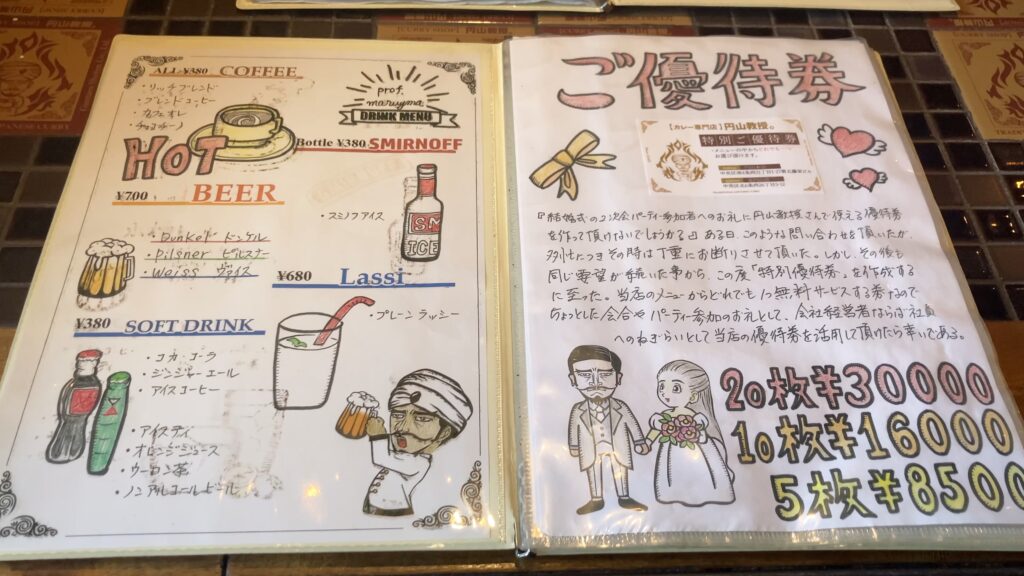 ALL ¥380 COFFEE
・リッチブレンド
・ブレンドコーヒー
・カフェオレ
HOT
prof.
maruyama
DRINK MENU
Bottle ¥380 SMIRNOFF
・スミノフアイス
SN
ICE
¥700 BEER
・Dunkel ドゥンケル
・Pilsner ピルスナー
・Weiss ヴァイス
¥680 Lassi
・プレーンラッシー
¥380 SOFT DRINK
・コカ・コーラ
・ジンジャーエール
・アイスコーヒー
・アイスティ
・オレンジジュース
・ウーロン茶
・ノンアルコールビール
ご優待券
【カレー専門店】円山教授。
特別ご優待券
『結婚式の2次会パーティー参加者へのお礼に円山教授さんで使える優待券
を作って頂けないでしょうか?』ある日、このような問い合わせを頂いたが
多忙につきその時は丁重にお断りさせて頂いた。しかし、その後も
同じ要望が続いた事から、この度「特別優待券」を作成する
に至った。当店のメニューからどれでも1つ無料サービスする券なので
ちょっとした会合やパーティー参加のお礼として、会社経営者ならば社員
へのねぎらいとして当店の優待券を活用して頂けたら幸いである。
20枚¥30000
10枚¥16000
5枚¥8500